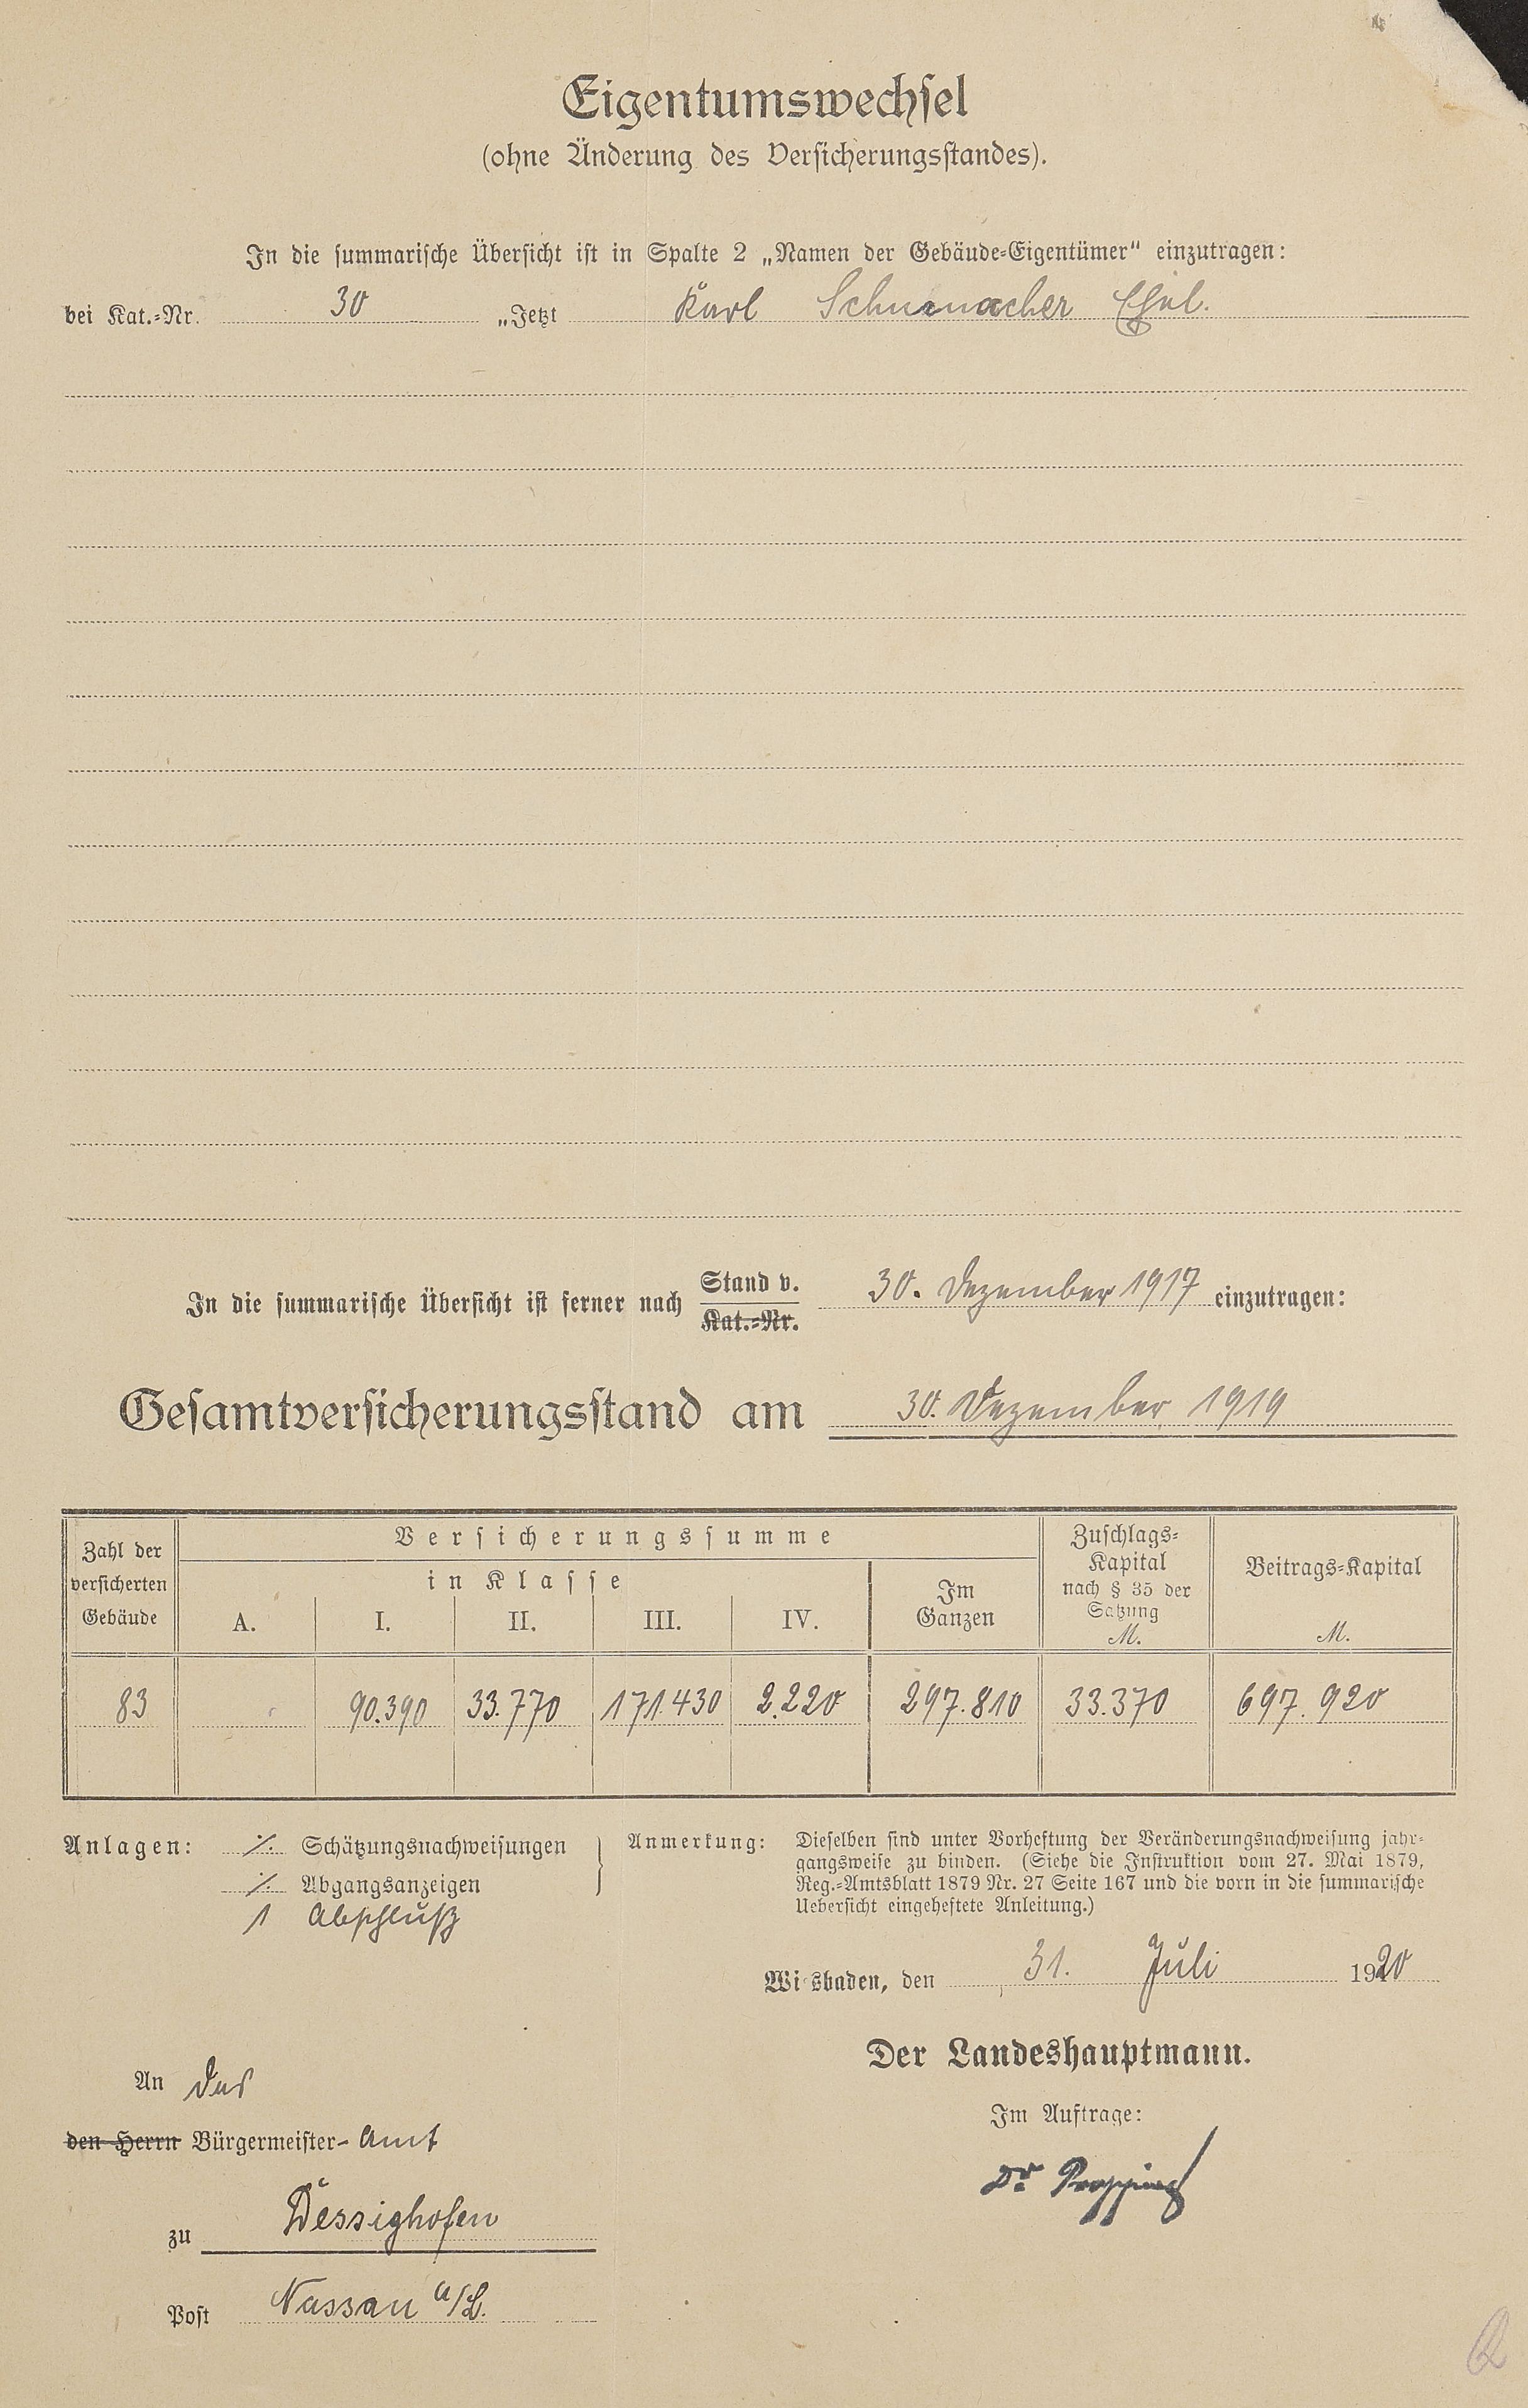 Eigentumswechsel
(ohne Änderung des Versicherungsstandes).
In die summarische Übersicht ist in Spalte 2 „Namen der Gebäude-Eigentümer“ einzutragen:
bei Kat.-Nr. 30 „Jetzt Karl Schumacher
In die summarische Übersicht ist ferner nach Stand v. 30. Dezember 1917 einzutragen:
Kat.-Nr.
Gesamtversicherungsstand am 30. Dezember 1919
Zahl der versicherten Gebäude
Versicherungssumme
in Klasse
A. I. II. III. IV.
Im Ganzen
Zuschlags-Kapital nach § 35 der Satzung M.
Beitrags-Kapital M.
83 90.390 33.770 171.430 2.220 297.810 33.370 697.920
Anlagen: ./. Schätzungsnachweisungen
./. Abgangsanzeigen
1 Abschluß
Anmerkung: Dieselben sind unter Vorheftung der Veränderungsnachweisung jahr-
gangsweise zu binden. (Siehe die Instruktion vom 27. Mai 1879,
Reg.-Amtsblatt 1879 Nr. 27 Seite 167 und die vorn in die summarische
Uebersicht eingeheftete Anleitung.)
Wiesbaden, den 31. Juli 1920
Der Landeshauptmann.
Im Auftrage:
Dr.
An das
den Herrn Bürgermeister-Amt
zu Dessighofen
Post Nassau a/L.